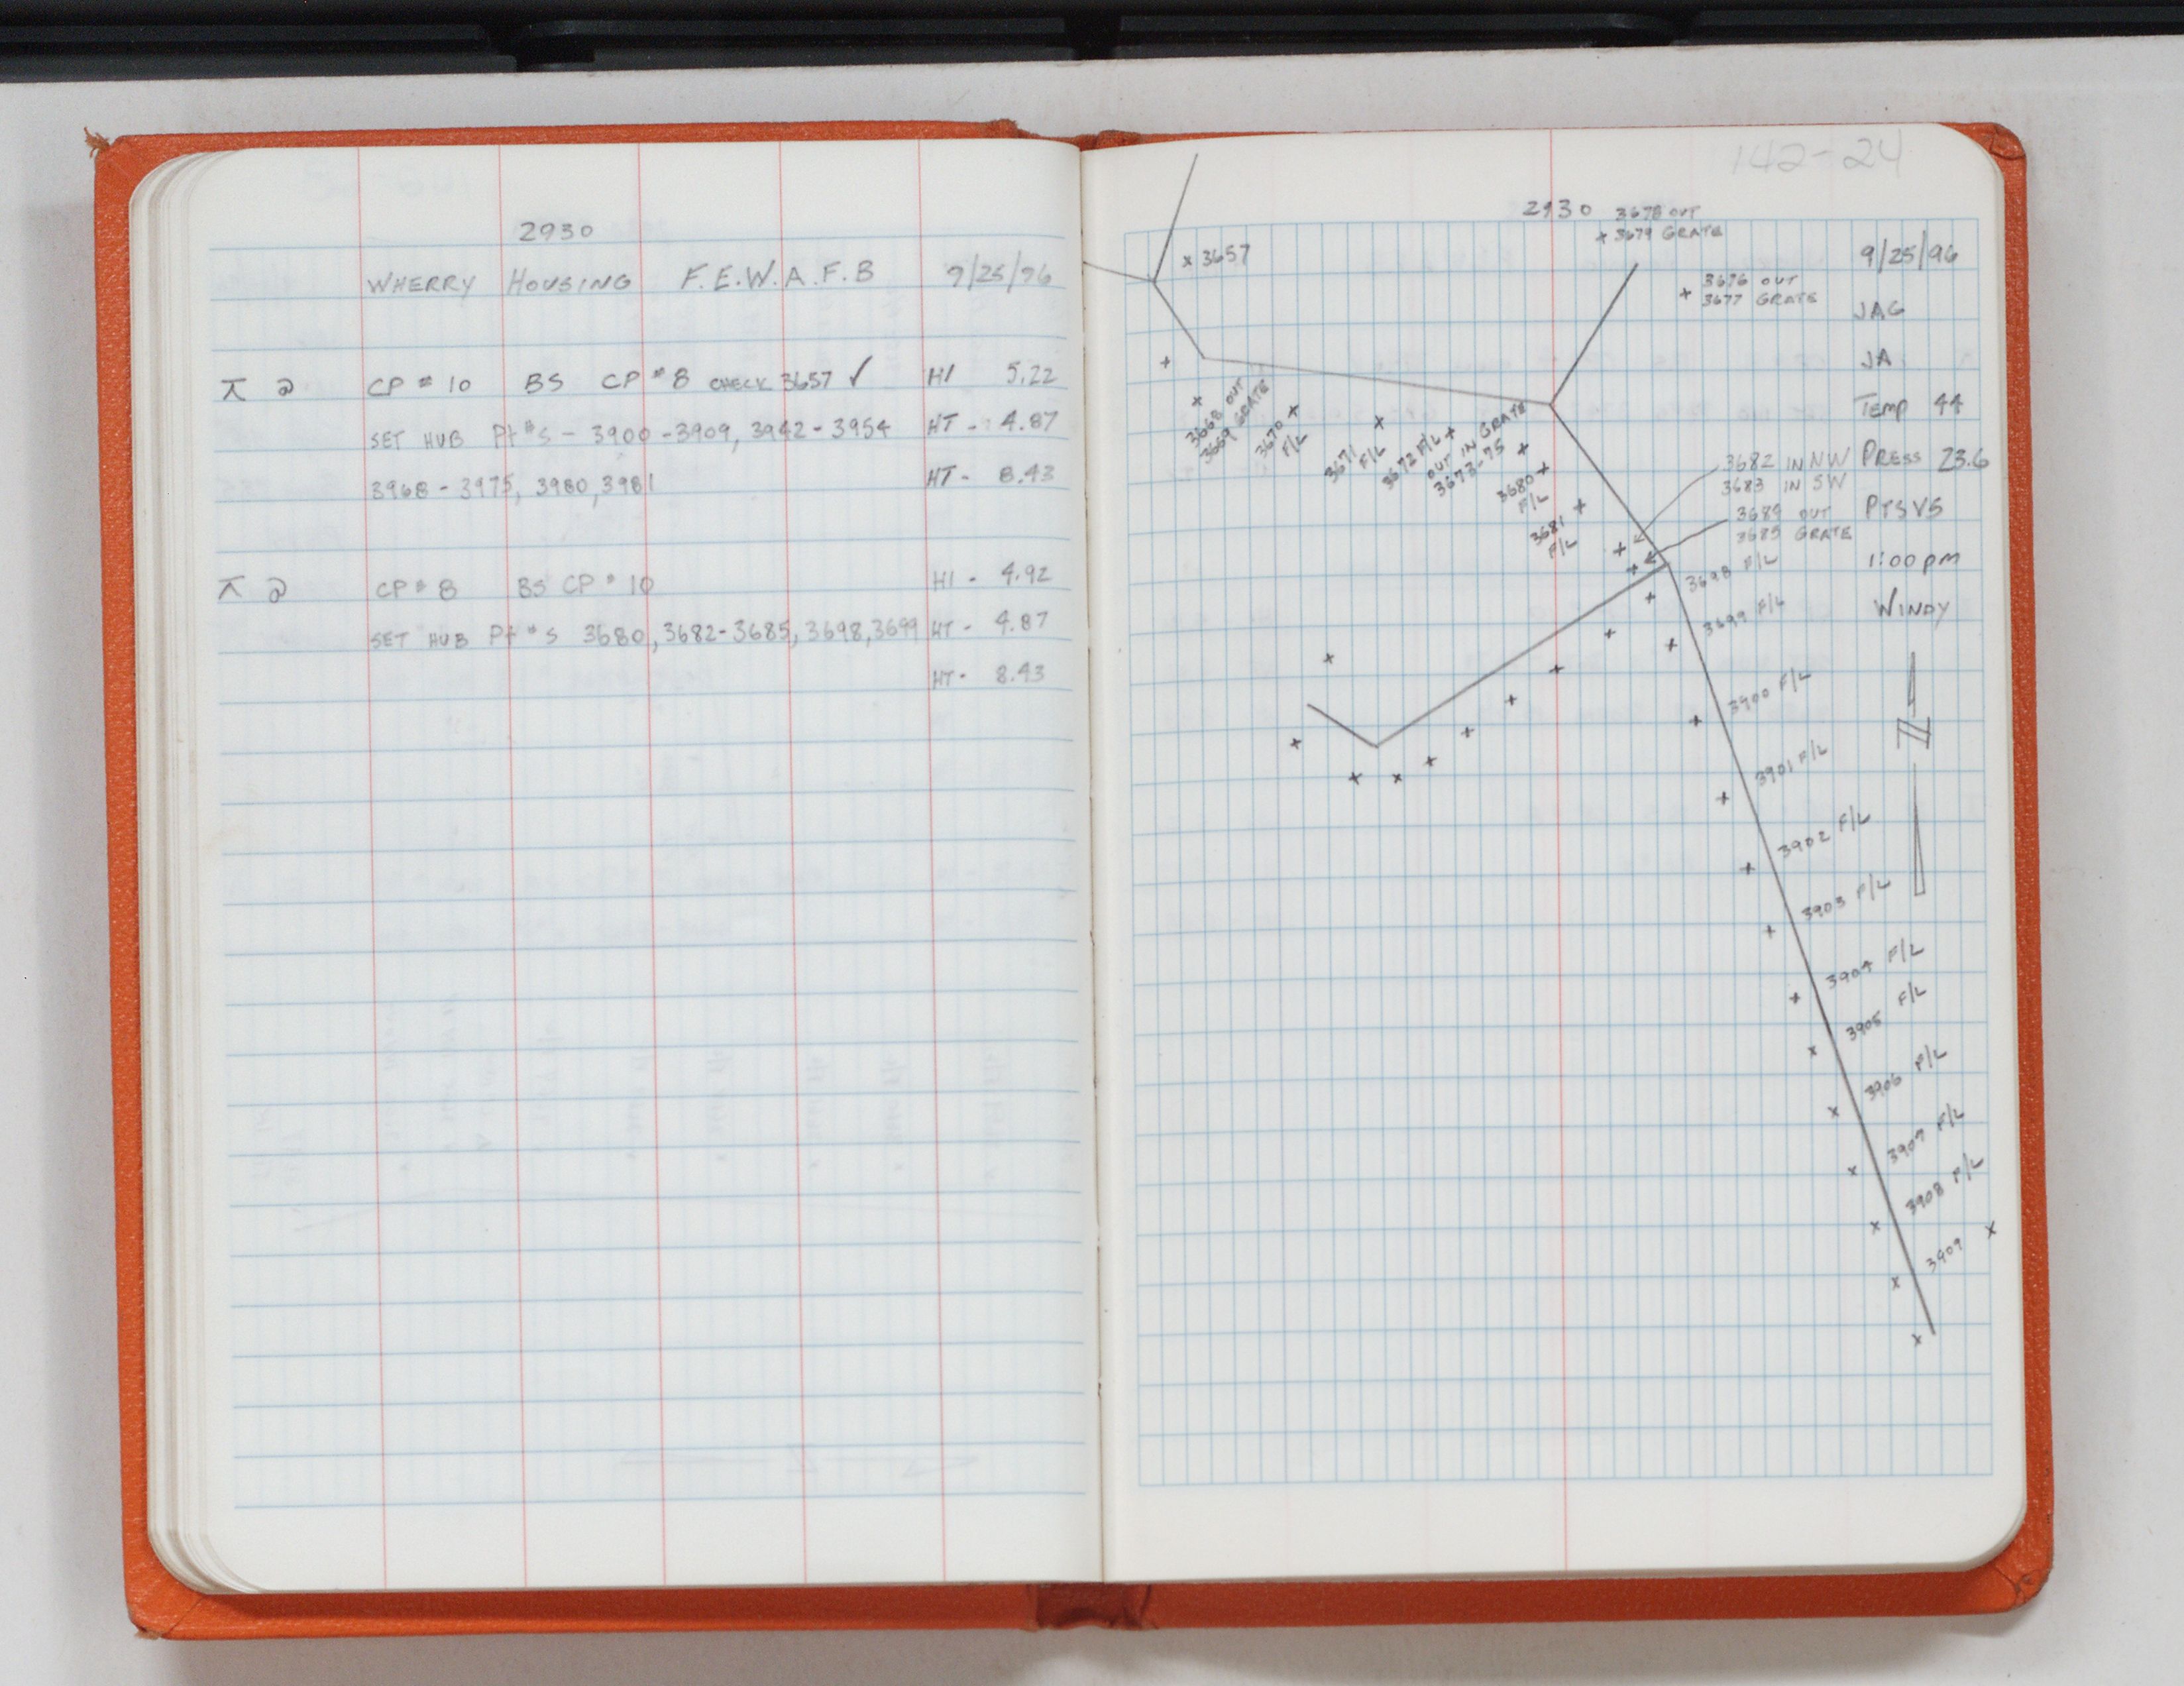 2930
WHERRY HOUSING F.E.W.A.F.B 9/25/96
⊼ @ CP # 10 BS CP # 8 CHECK 3657 ✓ HI 5.22
SET HUB Pt #S - 3900 - 3909, 3942 - 3954 HT - 4.87
3968 - 3975, 3980, 3981 HT - 8.43
⊼ @ CP # 8 BS CP # 10 HI - 4.92
SET HUB Pt #S 3680, 3682-3685, 3698, 3699 HT - 4.87
HT - 8.43
142-24
2930
3678 OUT
3679 GRATE
3657
3676 OUT
3677 GRATE
9/25/96
JAG
JA
TEMP 44
PRESS 23.6
PTSVS
1:00 PM
WINDY
N
3668 OUT
3669 GRATE
3670
F/L
3671
F/L
3672 F/L
OUT IN GRATE
3673-75
3680
F/L
3681
F/L
3682 IN NW
3683 IN SW
3684 OUT
3685 GRATE
3698 F/L
3699 F/L
3900 F/L
3901 F/L
3902 F/L
3903 F/L
3904 F/L
3905 F/L
3906 F/L
3907 F/L
3908 F/L
3909